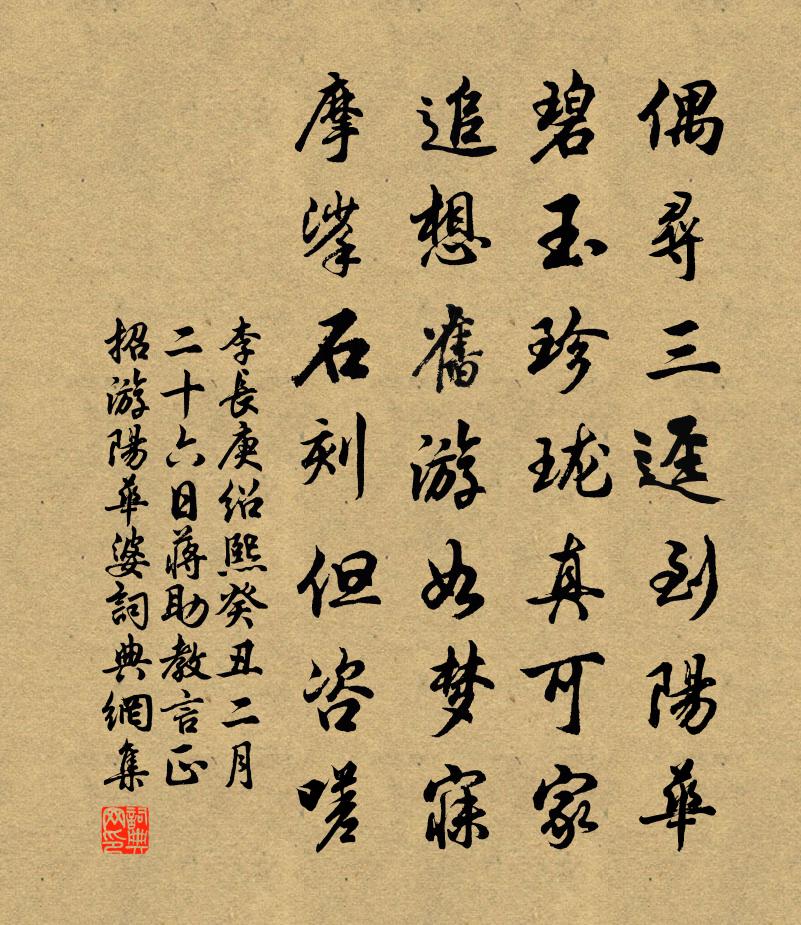 偶尋三逕到陽華
碧玉珍珑真可家
追想舊游如梦寐
摩挲石刻但咨嗟
李長庚绍熙癸丑二月
二十六日蒋助教言正
招游陽華婆詞典網集
詞典网印